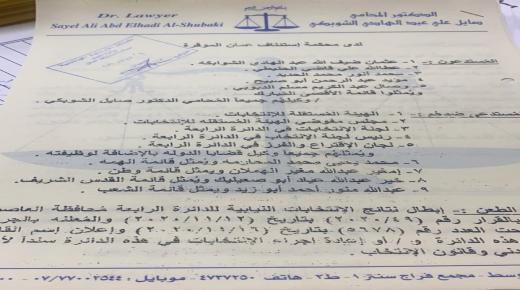 Dr. Lawyer
Sayel Ali Abd Elhadi Al-Shubaki
الدكتور المحامي
صايل علي عبد الهادي الشوبكي
لدى محكمة إستئناف عمان الموقرة
المستدعون :- ١- عثمان ضيف الله عبد الهادي الشوابكه .
٢- عطاالله علي قاضي الحنيطي .
٣- محمد انور محمد الحديد .
٤- مؤيد عبد الرحمن أبو صبيح .
٥- وصال عبد الكريم مسلم
ويمثلوا قائمة الأقصى المبارك .
/ وكيلهم جميعا المحامي الدكتور صايل الشوبكي .
المستدعى ضدهم :- ١- الهيئة المستقلة للإنتخابات
٢- مجلس مفوضي الهيئة المستقلة للإنتخابات .
٣- لجنة الإنتخابات في الدائرة الرابعة .
٤- رئيس لجنة الإنتخاب في الدائرة الرابعة .
٥- لجان الإقتراع والفرز في الدائرة الرابعة .
ويمثلهم جميعا وكيل قضايا الدولة بالإضافة لوظيفته .
٦- محمد يحيى محمد المحارمه ويمثل قائمة الهمه .
٧- عبدالله مقبل الهملان ويمثل قائمة وطن .
٨- خير عبدالله عياد أبو صعيليك ويمثل قائمة القدس الشريف .
٩- عبدالله منور أحمد أبو زيد ويمثل قائمة الشعب .
الطعن :- إبطال نتائج الإنتخابات النيابية للدائرة الرابعة محافظة العاصمة
بالقرار رقم (٢٠٢٠/٤٩) بتاريخ (٢٠٢٠/١١/١٢) والمعلنه
تحت العدد رقم (٥٦٧٨) بتاريخ (٢٠٢٠/١١/١٦) وإعلان إسم
هذه الدائرة و / أو إعادة إجراء الإنتخابات في هذه الدائرة سنداً
وقانون الإنتخاب .
مجمع فراج سنتر ١ - ط٣ - هاتف ٤٧٣٧٢٥٠ - موبايل ٠٧/٧٧٠٠٢٥٤٤